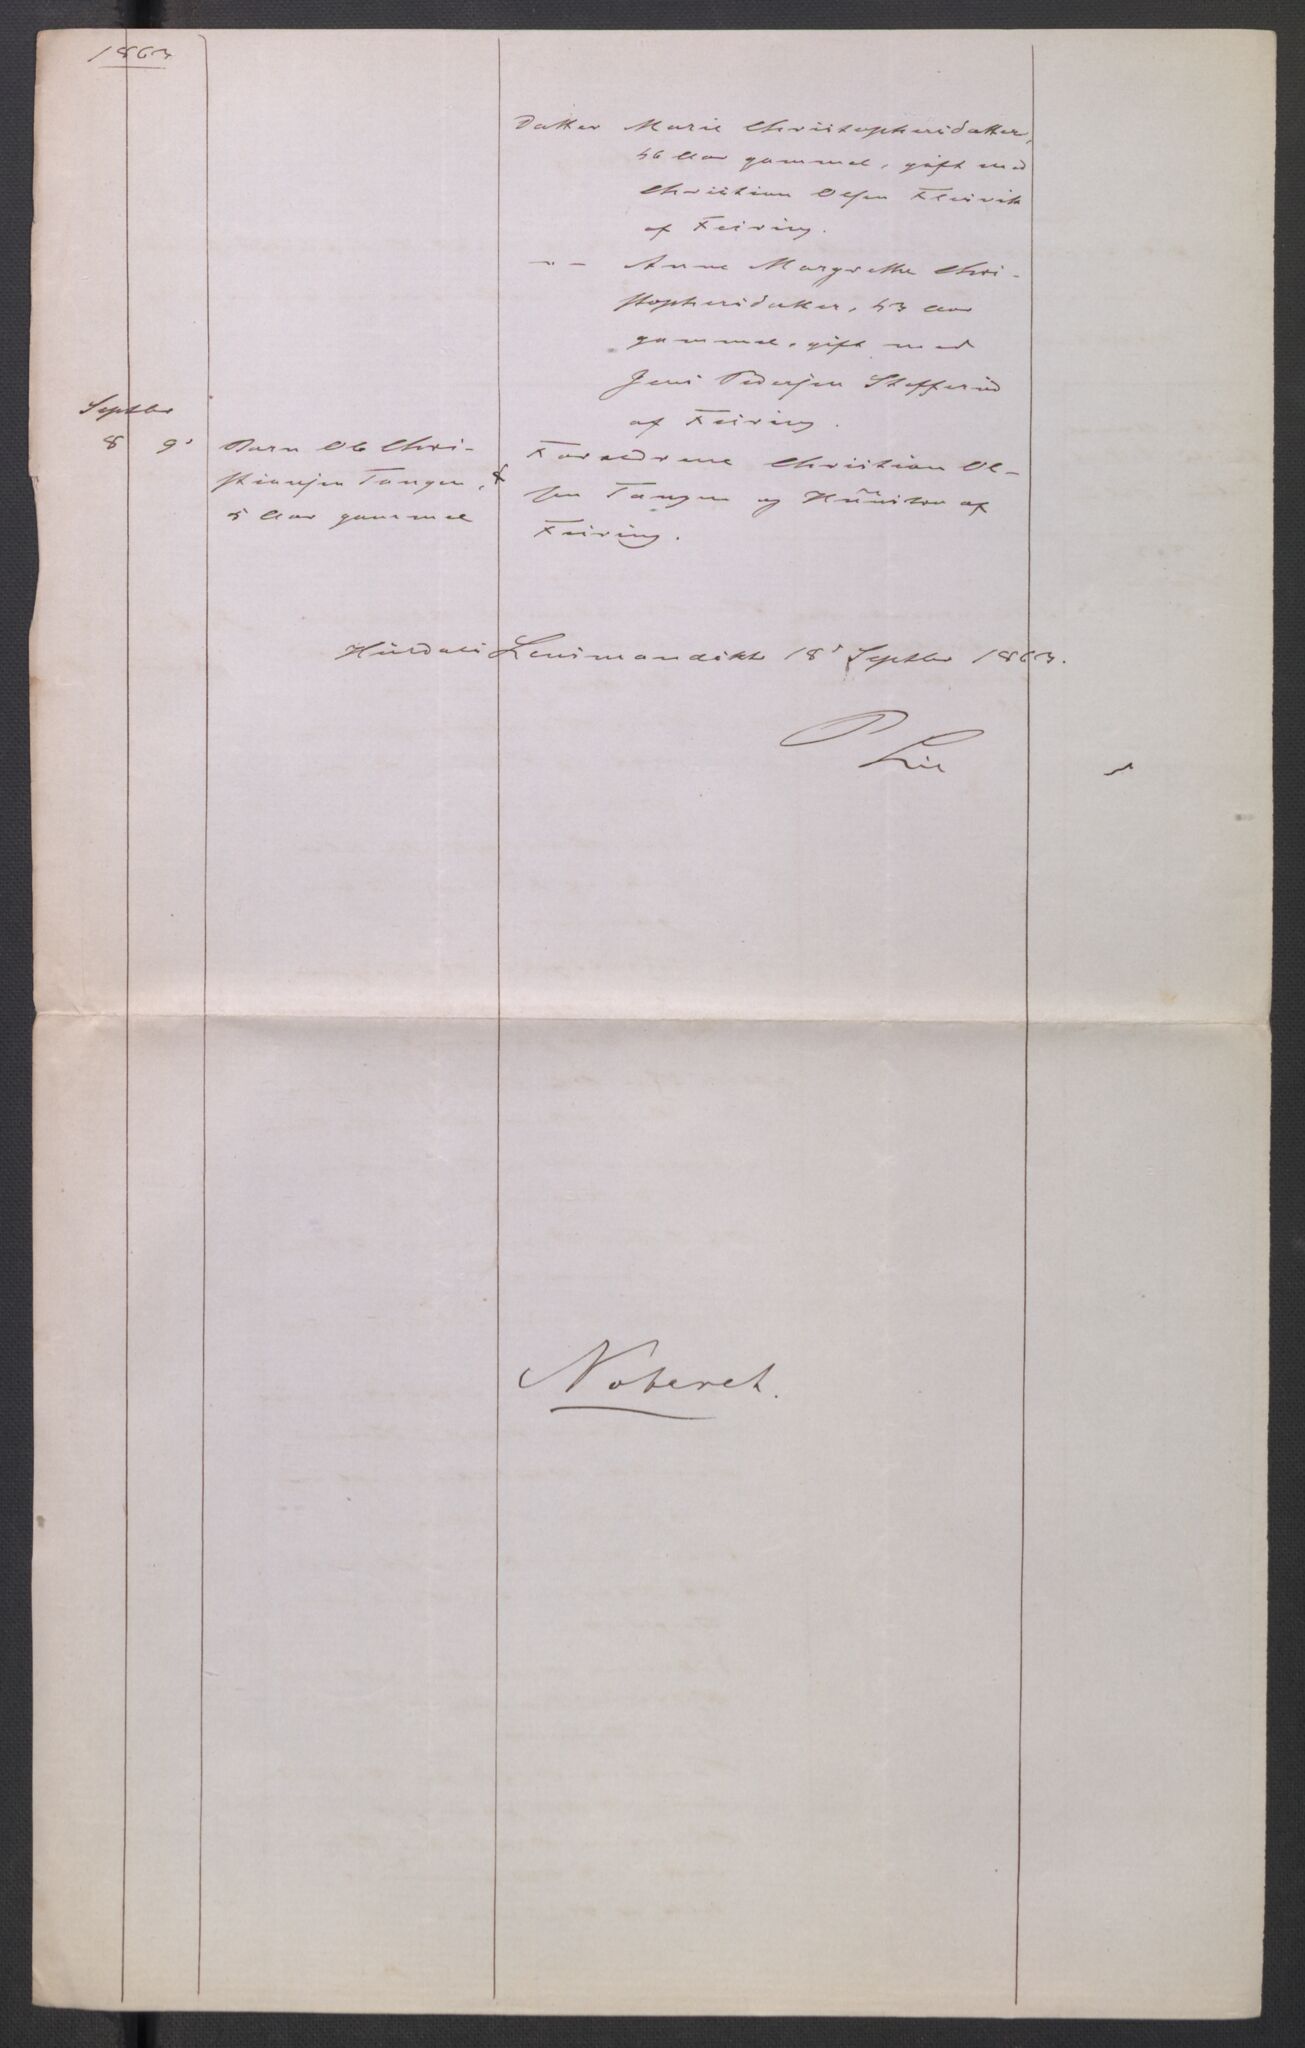 1863
Datter Marie Christophersdatter,
56 Aar gammel, gift med
Christian Olsen
af Feiring.
-"- Anne Margrethe Chri-
stophersdatter, 53 Aar
gammel, gift med
Jens Pedersen Stefferud
af Feiring.
Septbr
8 9' Barn Ole Chri-
stiansen Tangen,
5 Aar gammel
Forældrene Christian Ol-
sen Tangen og Hustru af
Feiring.
Hurdals Lensmandskt 18' Septbr 1863.
P Lie
Noteret.